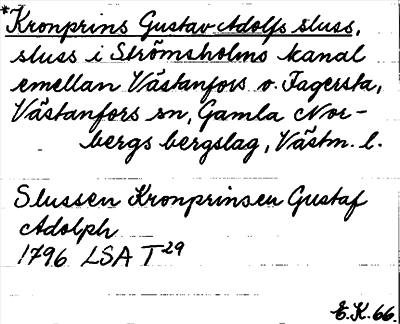 *Kronprins Gustav Adolfs sluss,
sluss i Strömsholms kanal
emellan Västanfors o. Fagersta,
Västanfors sn, Gamla Nor-
bergs bergslag, Västm. l.
Slussen Kronprinsen Gustaf
Adolph
1796 LSA T29
E.K. 66.